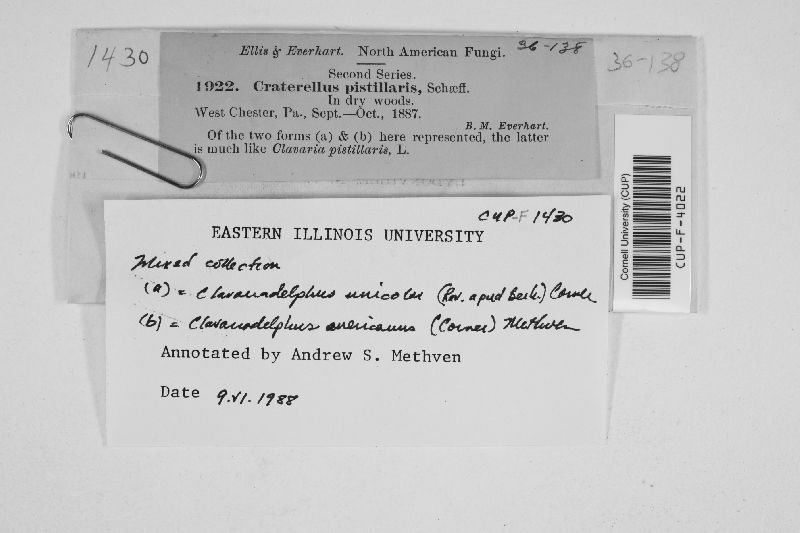 1430
Ellis & Everhart. North American Fungi.
36-138
36-138
Second Series.
1922. Craterellus pistillaris, Schæff.
In dry woods.
West Chester, Pa., Sept.—Oct., 1887.
B. M. Everhart.
Of the two forms (a) & (b) here represented, the latter
is much like Clavaria pistillaris, L.
Cornell University (CUP)
CUP-F-4022
CUP-F 1430
EASTERN ILLINOIS UNIVERSITY
Mixed collection
(a) = Clavariadelphus unicolor (Rav. apud Berk.) Corner
(b) = Clavariadelphus americanus (Corner) Methven
Annotated by Andrew S. Methven
Date 9.VI.1988